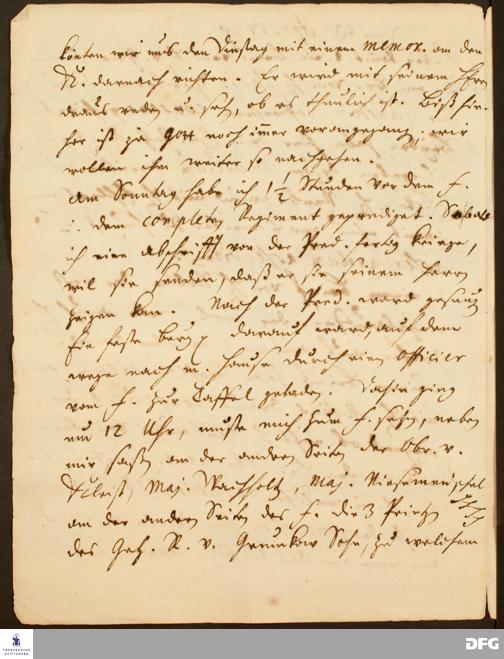 könten wir uns den Dinstag mit einem memor. an den
K. darnach richten. Er wird mit seinem Herrn
draus reden u. sehen, ob es thunlich ist. Biß hie-
her ist ja Gott noch immer vorangegang, wir
wollen ihm weiter so nachgehen.
Am Sontag habe ich 1 1/2 Stunden vor dem K.
u. dem completen Regiment geprediget. So bald
ich eine abschrifft von der Pred. fertig kriege,
wil sie senden, daß er sie seinem Herrn
zeigen kan. Nach der Pred. ward gesung
Ein feste burg darauf ward auf dem
wege nach m. Hause durch einen Officier
vom K. zur Taffel geladen. Dahin ging
um 12 Uhr, muste mich zum K. setzen, neben
mir saßen an der andern Seiten der Obr. v.
Kleist, Maj. Wachholtz, Maj.
an der andern Seiten des K. die 3 Printzen
des Geh. R. v. Grumkow Sohn, zu welchem
FRANCKESCHE STIFTUNGEN
DFG